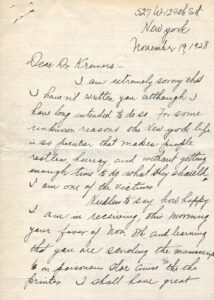 527 W-124th St
New York
November 19, 1928
Dear Dr Kremers-
I am extremely sorry that
I haven't written you although I
have long intended to do so for some
unknown reasons the New York life
is so peculiar that makes people
restless, hurry, and without getting
enough time to do what they should
I am one of the victims
Needless to say how happy
I am in receiving, this morning
your favor of Nov. 8th and learning
that you are sending the manuscript
to the
printer I shall have great